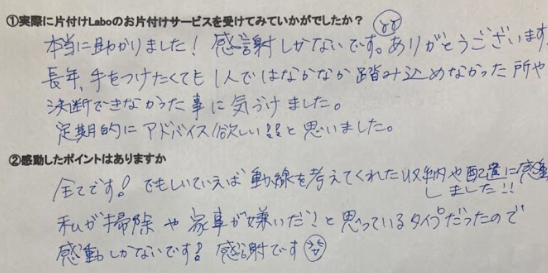 ①実際に片付けLaboのお片付けサービスを受けてみていかがでしたか？
本当に助かりました！感謝しかないです。ありがとうございます
長年、手をつけたくても1人ではなかなか踏み込めなかった所や
決断できなかった事に気づけました。
定期的にアドバイス欲しい!!と思いました。
②感動したポイントはありますか
全てです！でもしいていえば動線を考えてくれた収納や配置に感動
しました!!
私が掃除や家事が嫌いだ！と思っているタイプだったので
感動しかないです！感謝です